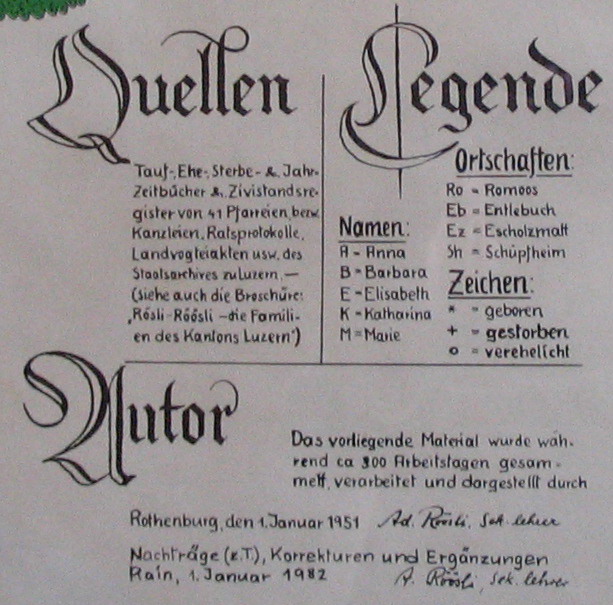 Quellen
Tauf-, Ehe-, Sterbe- & Jahr-
Zeitbücher & Zivilstandsre-
gister von 41 Pfarreien, bezw.
Kanzleien, Ratsprotokolle,
Landvogteiakten usw. des
Staatsarchives zu Luzern. —
(siehe auch die Broschüre:
„Rösli-Röösli - die Famili-
en des Kantons Luzern")
Legende
Namen:
A - Anna
B - Barbara
E - Elisabeth
K - Katharina
M = Marie
Ortschaften:
Ro = Romoos
Eb = Entlebuch
Ez = Escholzmatt
Sh = Schüpfheim
Zeichen:
* = geboren
+ = gestorben
o = verehelicht
Autor
Das vorliegende Material wurde wäh-
rend ca 300 Arbeitstagen gesam-
melt, verarbeitet und dargestellt durch
Rothenburg, den 1. Januar 1951 Ad. Röösli, Sek. lehrer
Nachträge (z.T.), Korrekturen und Ergänzungen
Rain, 1. Januar 1982 A. Röösli, Sek. lehrer